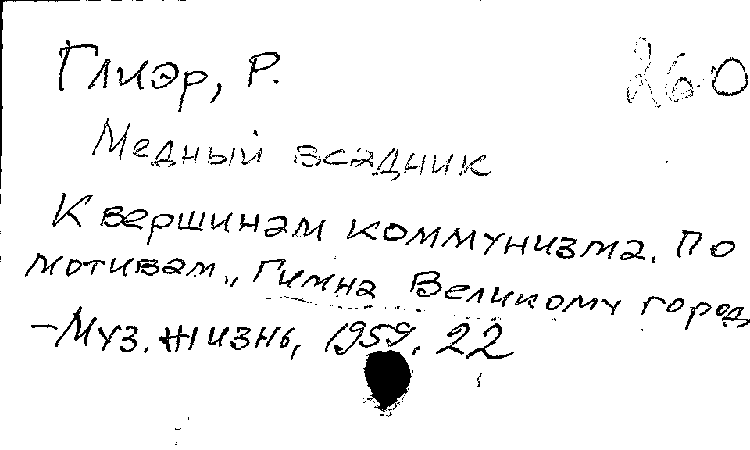 Глиэр, Р. 260
Медный всадник
К вершинам коммунизма. По
мотивам „Гимна Великому город
—Муз. жизнь, 1959. 22